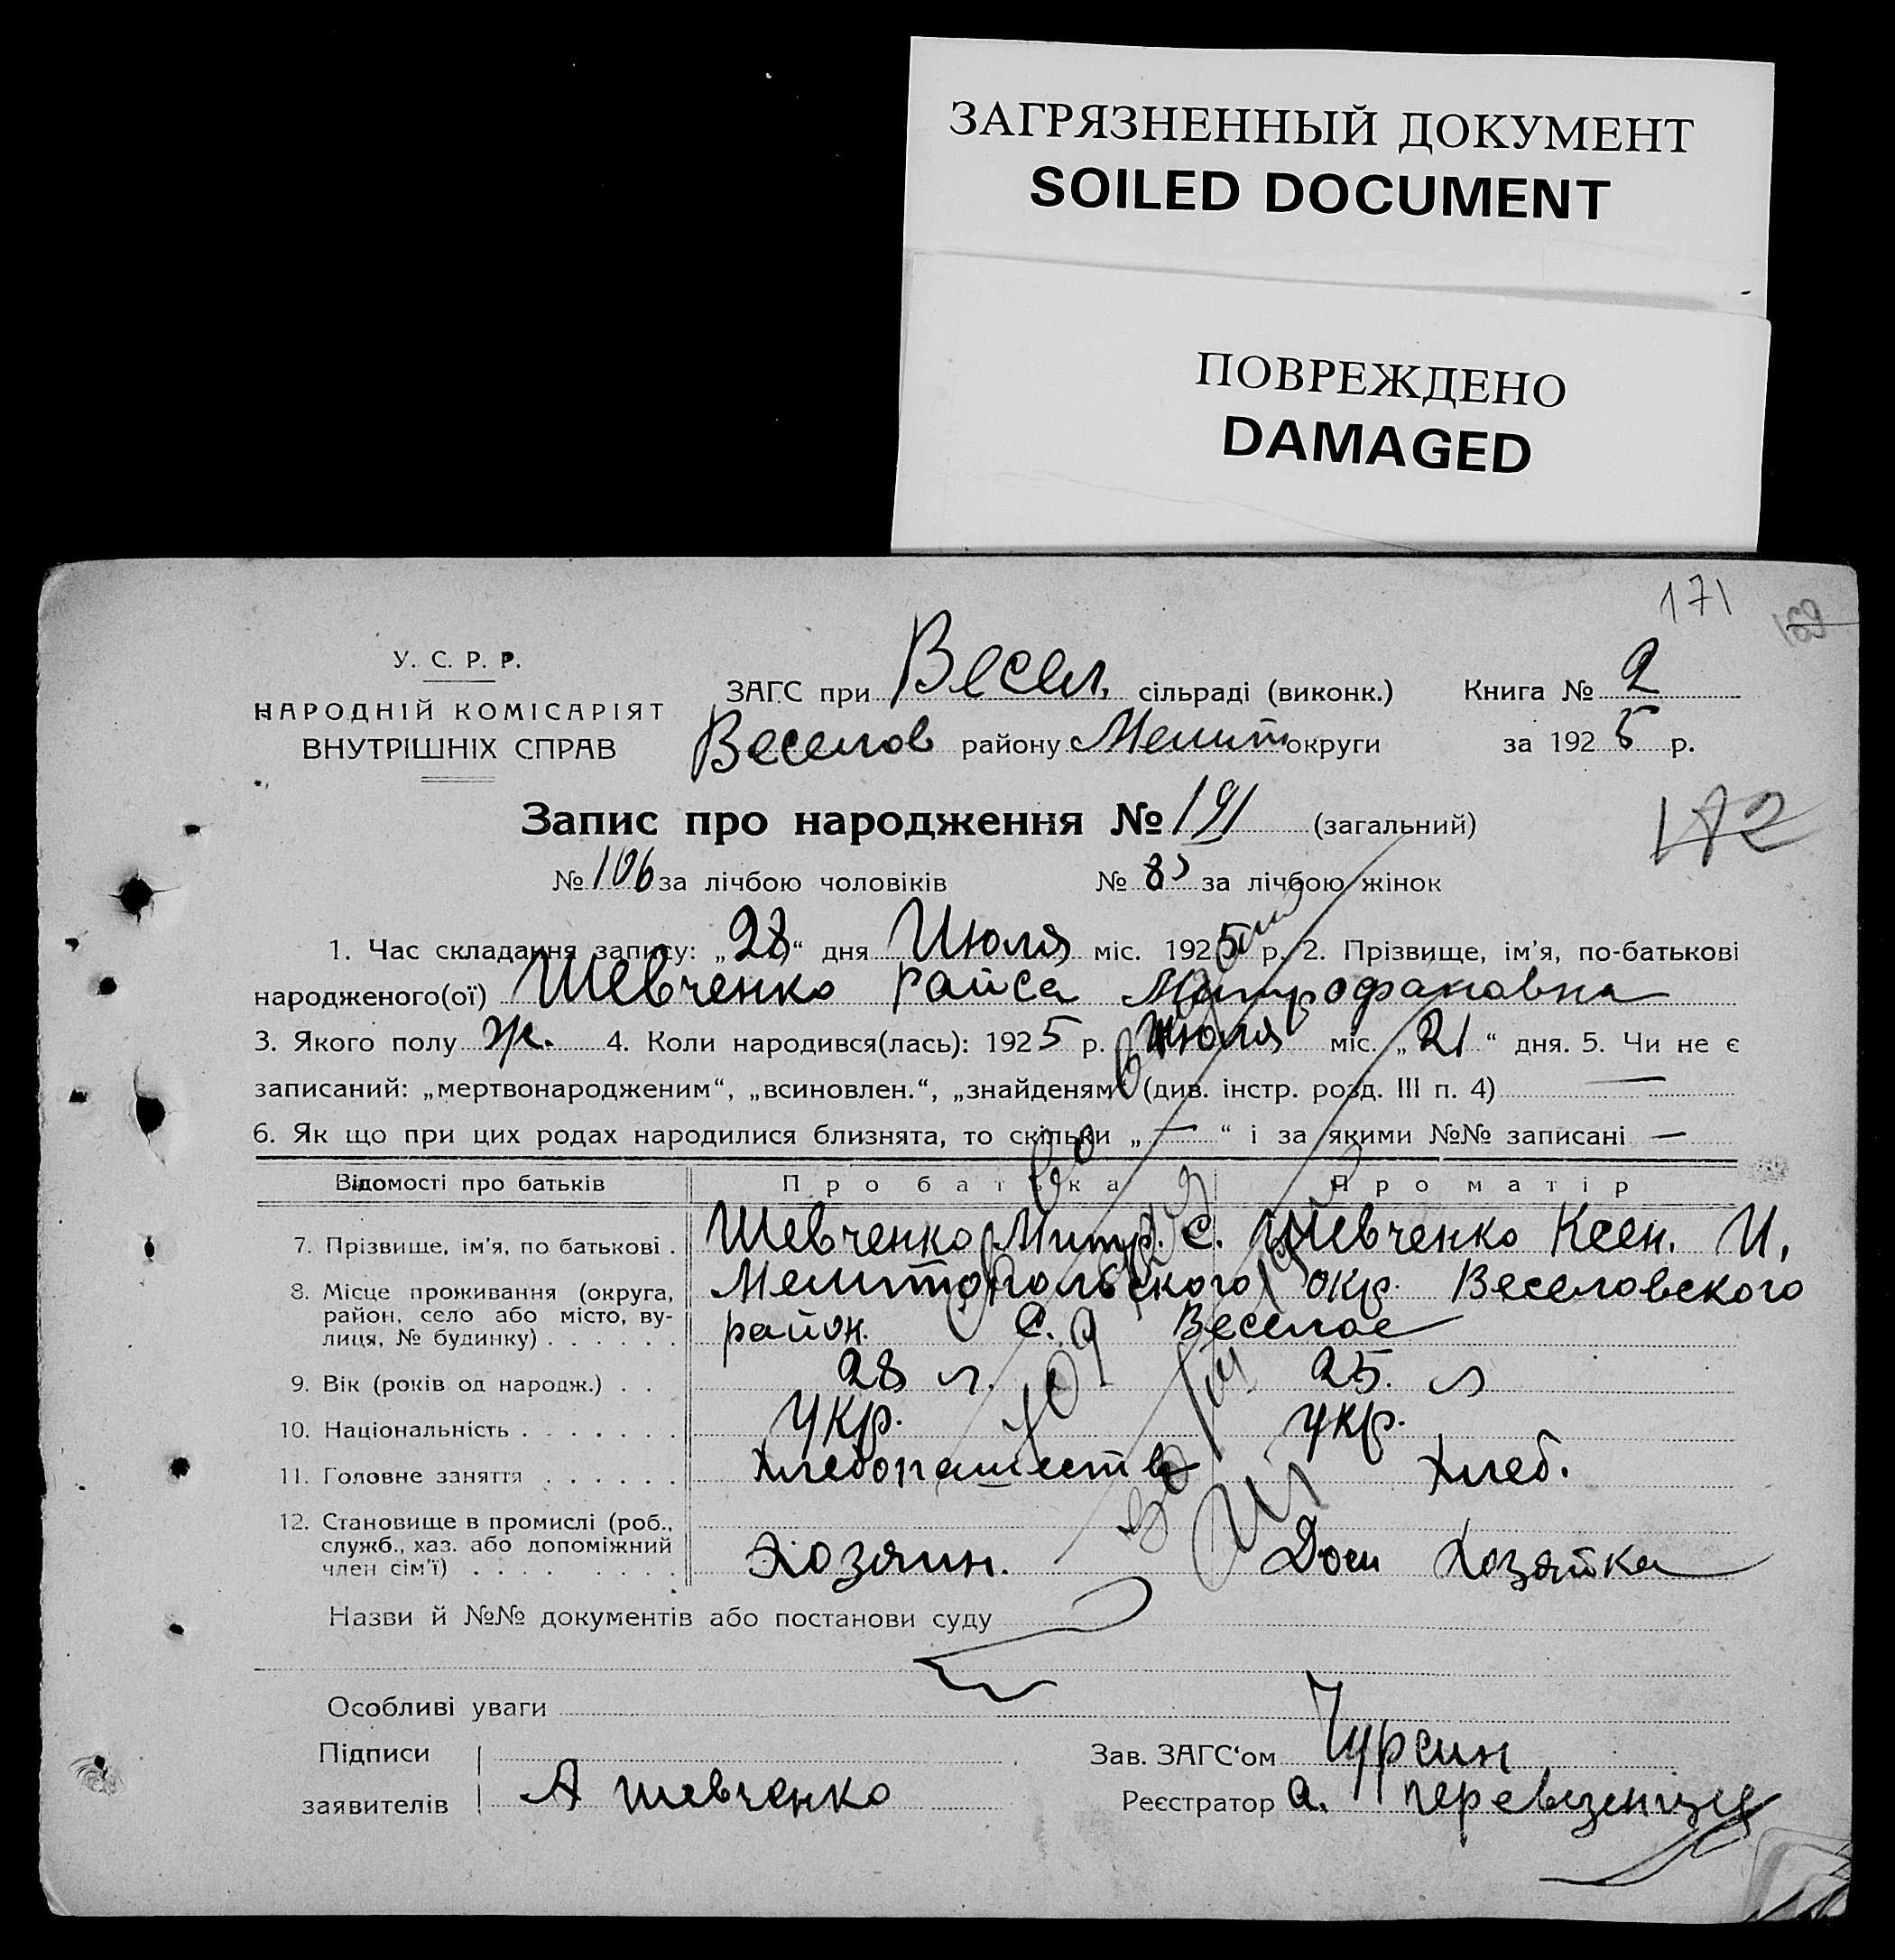 ЗАГРЯЗНЕННЫЙ ДОКУМЕНТ
SOILED DOCUMENT
ПОВРЕЖДЕНО
DAMAGED
171
У. С. Р. Р.
НАРОДНІЙ КОМІСАРІЯТ
ВНУТРІШНІХ СПРАВ
ЗАГС при Весел. сільраді (виконк.) Книга № 2
Веселов району Мелит округи за 1925 р.
Запис про народження № 191 (загальний)
172
№ 106 за лічбою чоловіків № 85 за лічбою жінок
1. Час складання запису: „28“ дня Июля міс. 1925 р. 2. Прізвище, ім'я, по-батькові
народженого(ої) Шевченко Раиса Митрофановна
3. Якого полу ж. 4. Коли народився(лась): 1925 р. Июля міс. „21“ дня. 5. Чи не є
записаний: „мертвонародженим“, „всиновлен.“, „знайденям“ (див. інстр. розд. III п. 4) —
6. Як що при цих родах народилися близнята, то скільки „—“ і за якими №№ записані —
Відомості про батьків Про батька Про матір
7. Прізвище, ім'я, по батькові . Шевченко Митр. С. Шевченко Ксен. И.
8. Місце проживання (округа, район, село або місто, вулиця, № будинку) . . . . . . Мелитопольского окр. Веселовского
район. С. Веселое
9. Вік (років од народж.) . . 28 л. 25. л
10. Національність . . . . . . . Укр. укр.
11. Головне заняття . . . . . . Хлебопашеств Хлеб.
12. Становище в промислі (роб., служб., хаз. або допоміжний член сім'ї) . . . . . . . . Хозяин. Дом Хозяйка
Назви й №№ документів або постанови суду
Особливі уваги
Підписи Зав. ЗАГС'ом Чурсин
заявителів А Шевченко Реєстратор а.